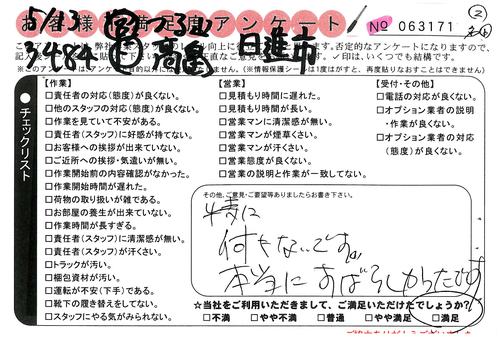 お客様満足度アンケート
No 063171
②
5/13
3484
高畠 日進市
記入後
否定的なアンケートになりますので、
✓印は、いくつでも結構です。
(※情報保護シールは1度はがすと、再度貼りなおすことはできません)
チェックリスト
【作業】
□責任者の対応(態度)が良くない。
□他のスタッフの対応(態度)が良くない。
□作業を見ていて不安がある。
□責任者(スタッフ)に好感が持てない。
□お客様への挨拶が出来ていない。
□ご近所への挨拶・気遣いが無い。
□作業開始前の内容確認がなかった。
□作業開始時間が遅れた。
□荷物の取り扱いが雑である。
□お部屋の養生が出来ていない。
□作業時間が長すぎる。
□責任者(スタッフ)に清潔感が無い。
□責任者(スタッフ)が汗くさい。
□トラックが汚い。
□梱包資材が汚い。
□運転が不安(下手)である。
□靴下の履き替えをしてない。
□スタッフにやる気がみられない。
【営業】
□見積もり時間に遅れた。
□見積もり時間が長い。
□営業マンに清潔感が無い。
□営業マンが煙草くさい。
□営業マンが汗くさい。
□営業態度が良くない。
□営業の説明と作業が一致してない。
【受付・その他】
□電話の対応が良くない。
□オプション業者の説明・作業が良くない。
□オプション業者の対応(態度)が良くない。
その他、ご意見・ご要望等ありましたらお書き下さい。
特に
何もないです。
本当にすばらしかったです
☆当社をご利用いただきまして、ご満足いただけたでしょうか?
□不満 □やや不満 □普通 □やや満足 □満足